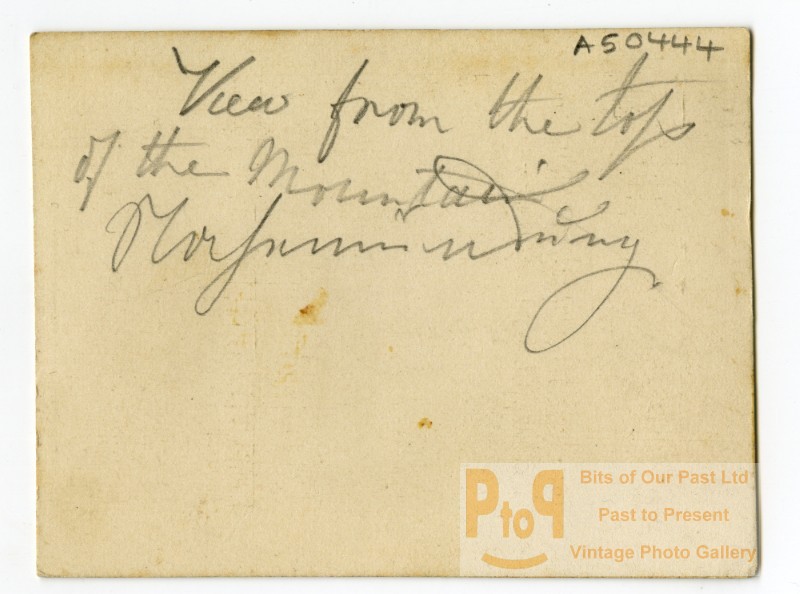 A50444
View from the top
of the Mountain
PtoP
Bits of Our Past Ltd
Past to Present
Vintage Photo Gallery